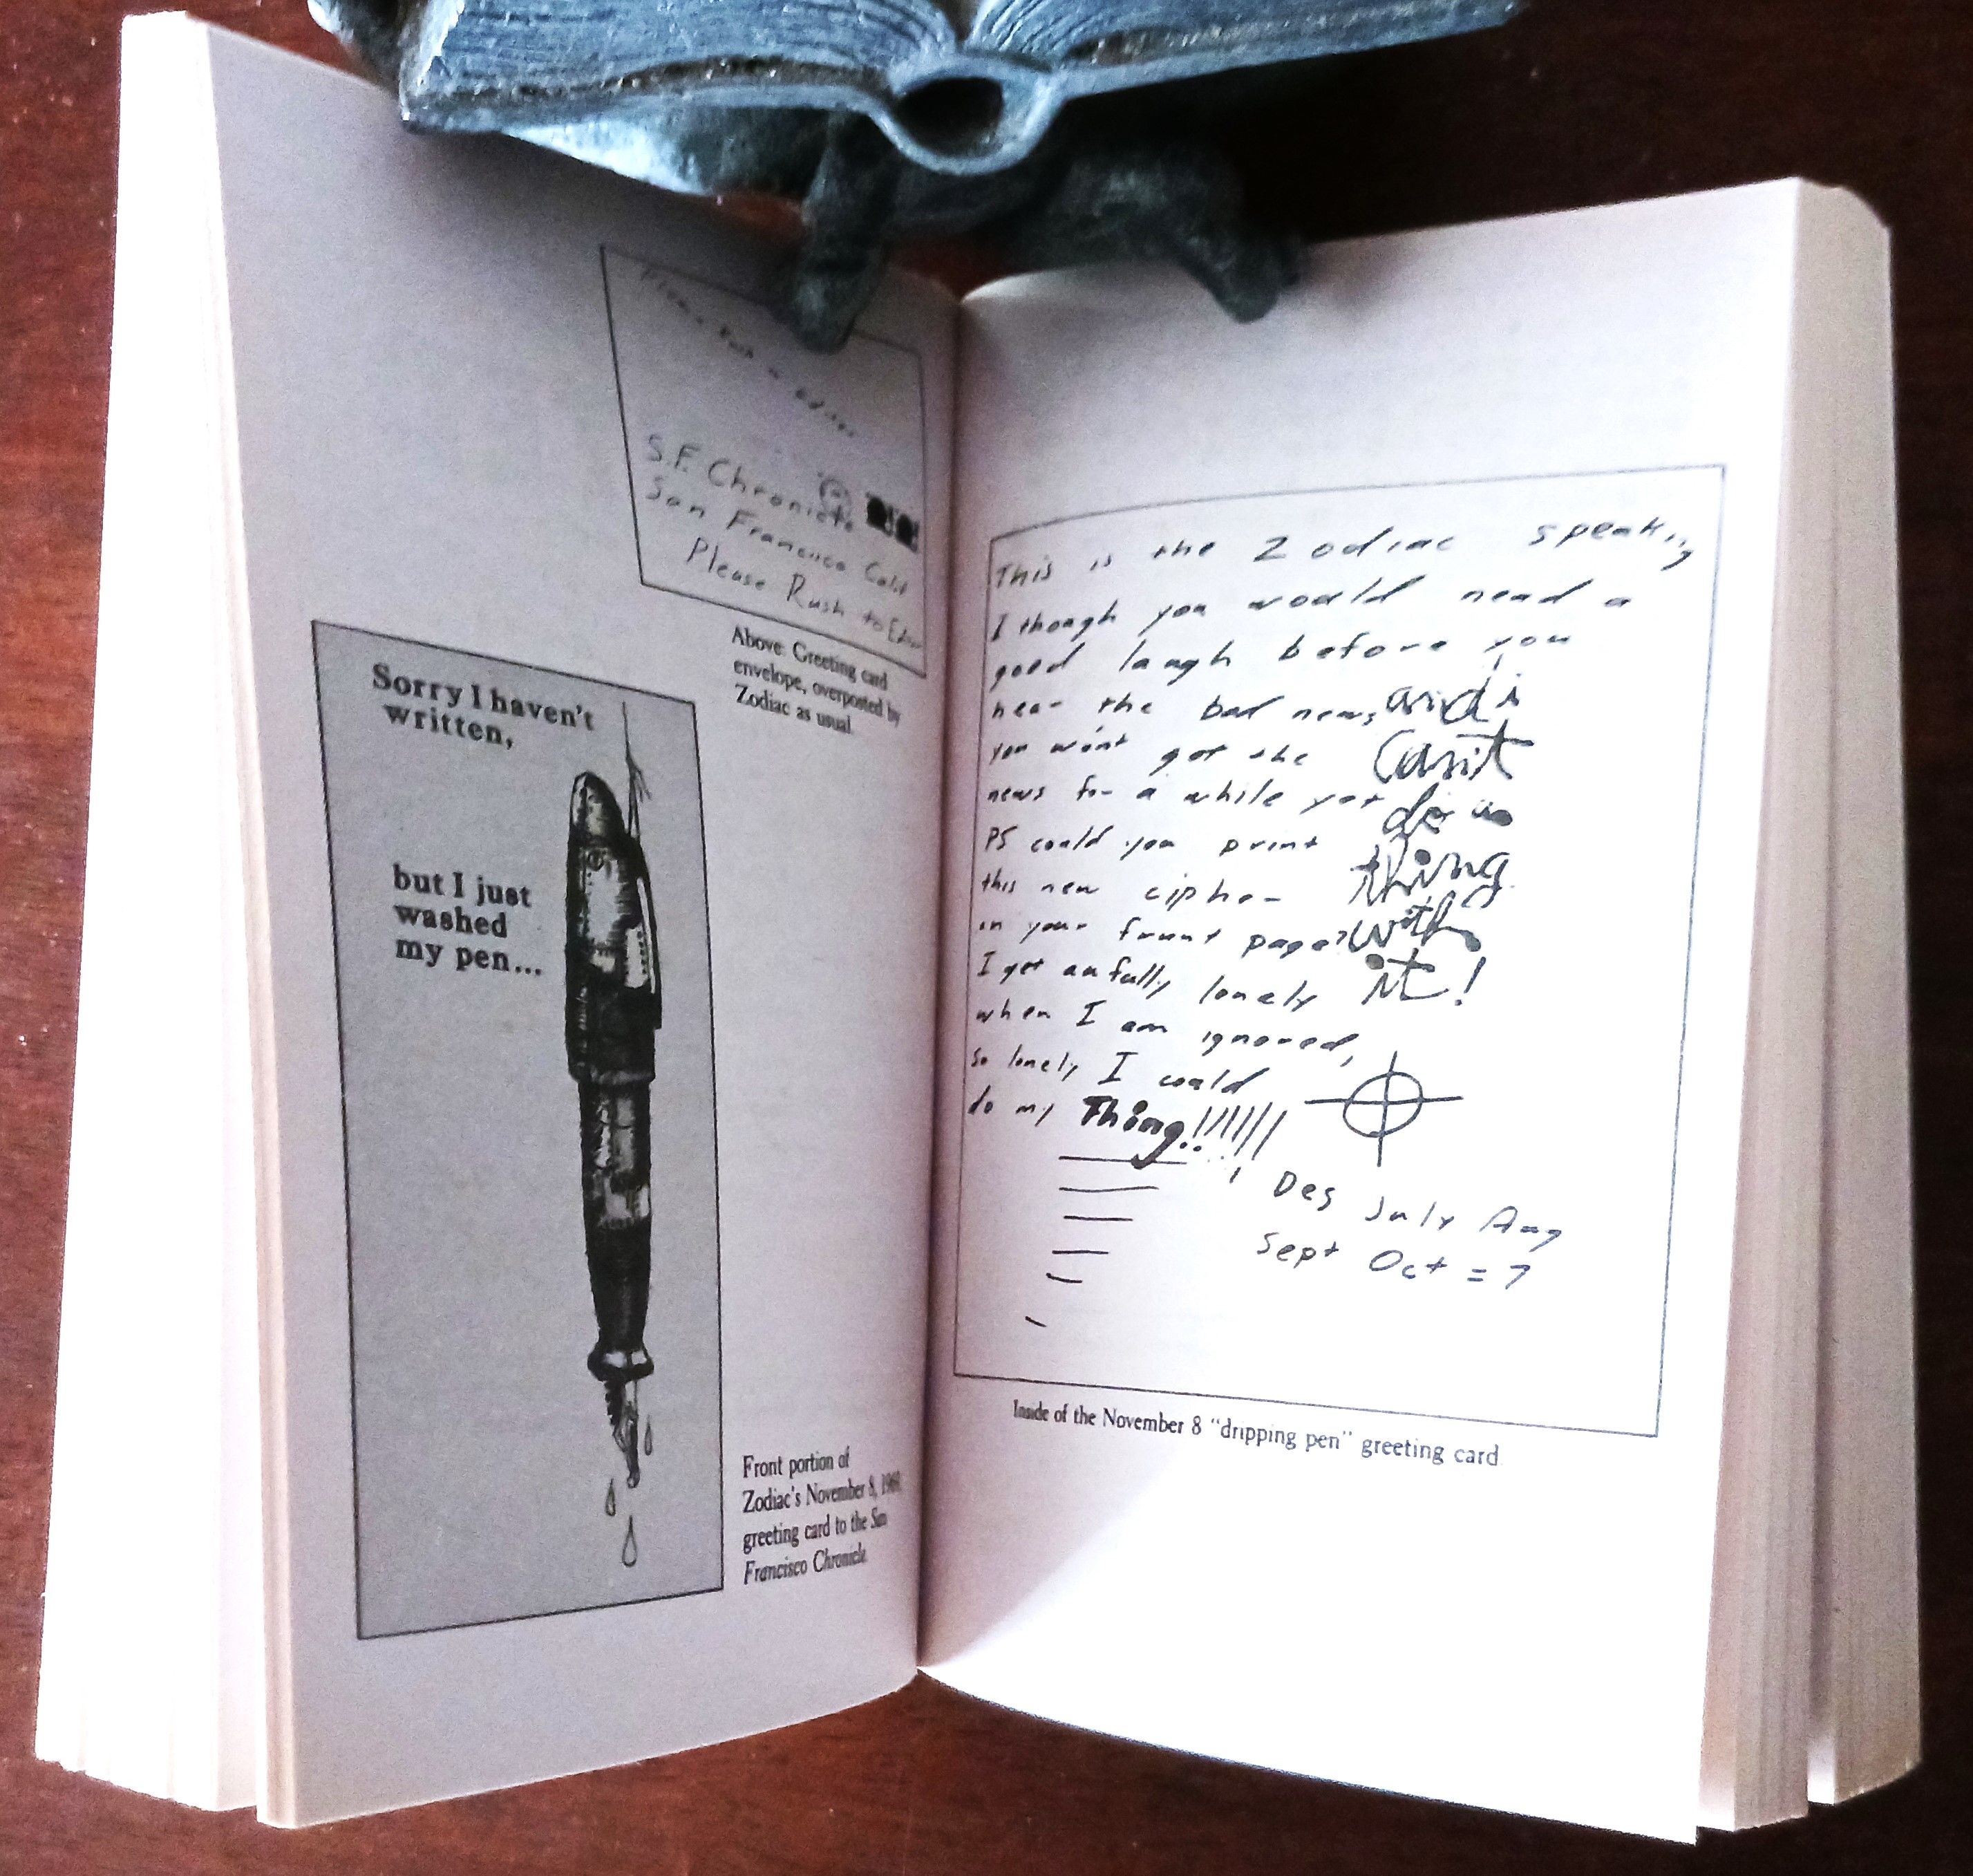 Please Rush to Editor
S.F. Chronicle
San Francisco Calif
Please Rush to Editor
Above: Greeting card
envelope, overposted by
Zodiac as usual.
Sorry I haven't
written,
but I just
washed
my pen...
Front portion of
Zodiac's November 8, 1969,
greeting card to the San
Francisco Chronicle.
This is the Zodiac speaking
I though you would nead a
good laugh before you
hear the bad news,
you won't get the
news for a while yet
PS could you print
this new cipher
in your frunt page?
I get awfully lonely
when I am ignored,
so lonely I could
do my Thing!!!!!!
and i
can't
do a
thing
with
it!
Des July Aug
Sept Oct = 7
Inside of the November 8 "dripping pen" greeting card